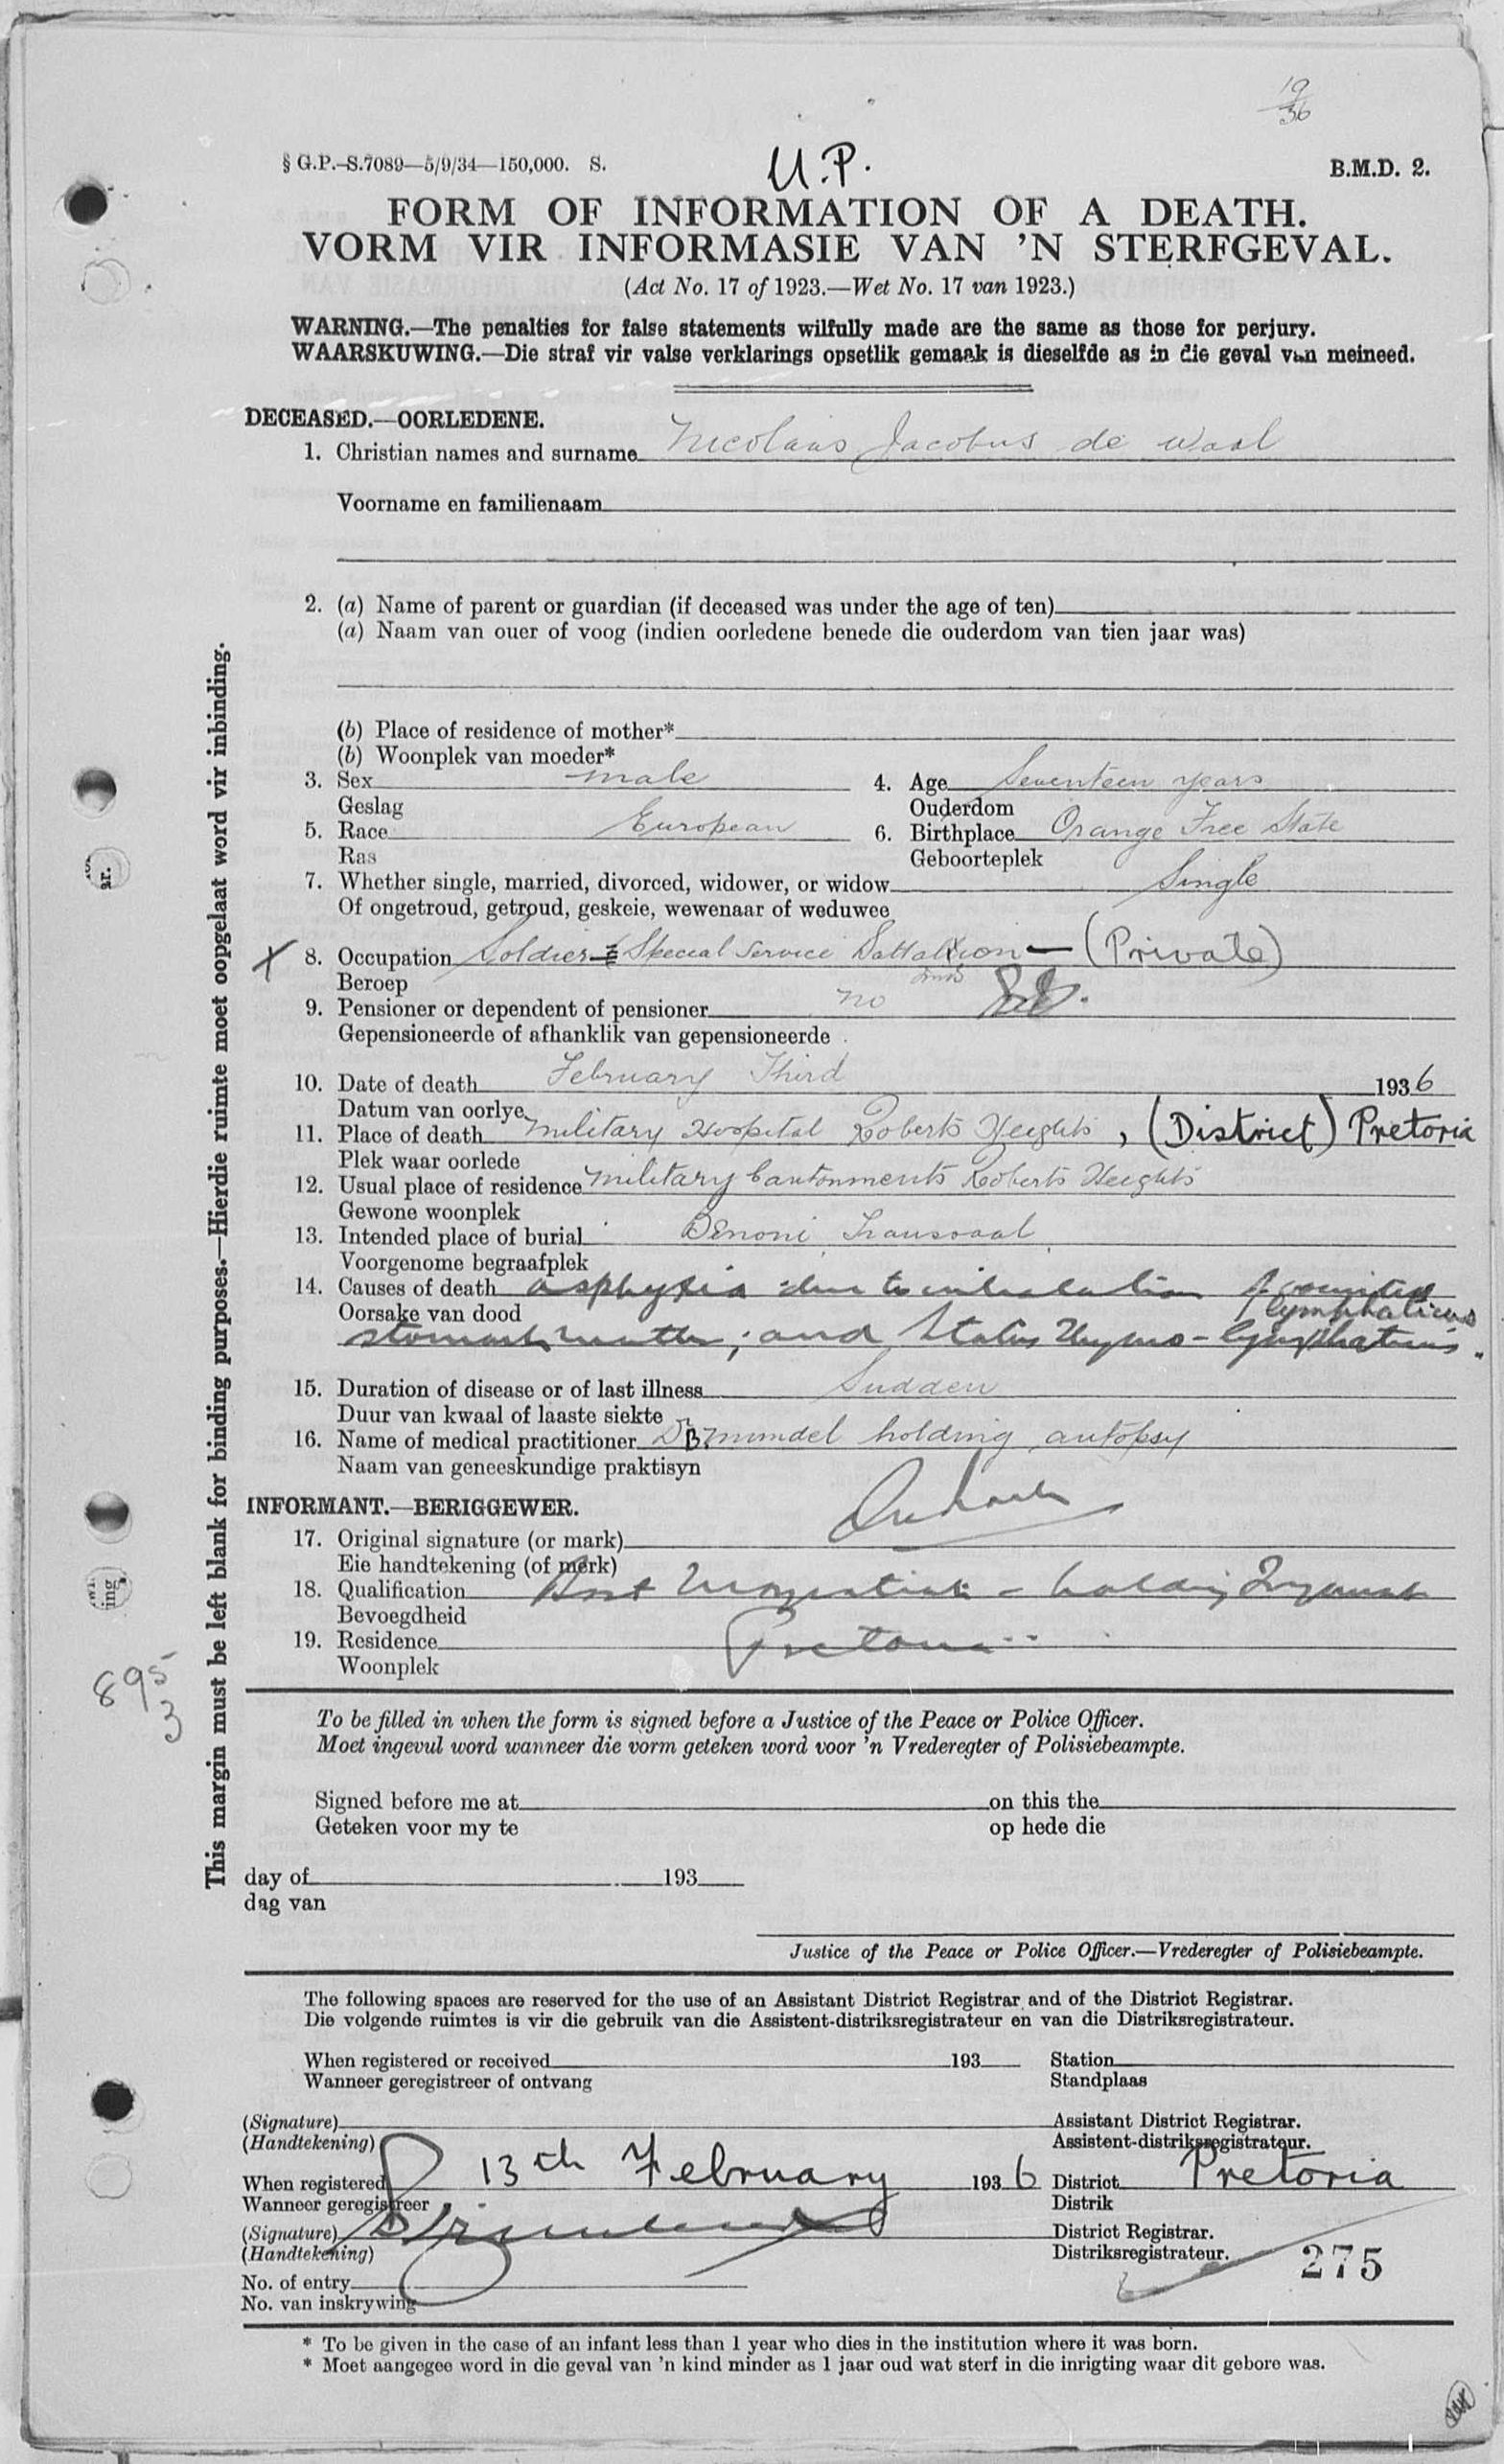 19
36
§ G.P.-S.7089—5/9/34—150,000. S.
U.P.
B.M.D. 2.
FORM OF INFORMATION OF A DEATH.
VORM VIR INFORMASIE VAN 'N STERFGEVAL.
(Act No. 17 of 1923.—Wet No. 17 van 1923.)
WARNING.—The penalties for false statements wilfully made are the same as those for perjury.
WAARSKUWING.—Die straf vir valse verklarings opsetlik gemaak is dieselfde as in die geval van meineed.
DECEASED.—OORLEDENE.
1. Christian names and surname Nicolaas Jacobus de Waal
Voorname en familienaam
2. (a) Name of parent or guardian (if deceased was under the age of ten)
(a) Naam van ouer of voog (indien oorledene benede die ouderdom van tien jaar was)
(b) Place of residence of mother*
(b) Woonplek van moeder*
3. Sex male 4. Age Seventeen years
Geslag Ouderdom
5. Race European 6. Birthplace Orange Free State
Ras Geboorteplek
7. Whether single, married, divorced, widower, or widow Single
Of ongetroud, getroud, geskeie, wewenaar of weduwee
X 8. Occupation Soldier Special Service Battalion — (Private)
Beroep
9. Pensioner or dependent of pensioner no
Gepensioneerde of afhanklik van gepensioneerde
10. Date of death February Third 1936
Datum van oorlye
11. Place of death Military Hospital Roberts Heights, (District) Pretoria
Plek waar oorlede
12. Usual place of residence Military Cantonments Roberts Heights
Gewone woonplek
13. Intended place of burial Benoni Transvaal
Voorgenome begraafplek
14. Causes of death asphyxia due to inhalation of vomited
Oorsake van dood lymphaticus
stomach matter; and Status Thymo-lymphaticus.
15. Duration of disease or of last illness Sudden
Duur van kwaal of laaste siekte
16. Name of medical practitioner Dr B Mundel holding autopsy
Naam van geneeskundige praktisyn
INFORMANT.—BERIGGEWER.
17. Original signature (or mark)
Eie handtekening (of merk)
18. Qualification Asst Magistrate - holding Inquest
Bevoegdheid
19. Residence Pretoria
Woonplek
895
3
This margin must be left blank for binding purposes.—Hierdie ruimte moet oopgelaat word vir inbinding.
To be filled in when the form is signed before a Justice of the Peace or Police Officer.
Moet ingevul word wanneer die vorm geteken word voor 'n Vrederegter of Polisiebeampte.
Signed before me at on this the
Geteken voor my te op hede die
day of 193
dag van
Justice of the Peace or Police Officer.—Vrederegter of Polisiebeampte.
The following spaces are reserved for the use of an Assistant District Registrar and of the District Registrar.
Die volgende ruimtes is vir die gebruik van die Assistent-distriksregistrateur en van die Distriksregistrateur.
When registered or received 193 Station
Wanneer geregistreer of ontvang Standplaas
(Signature) Assistant District Registrar.
(Handtekening) Assistent-distriksregistrateur.
When registered 13th February 1936 District Pretoria
Wanneer geregistreer Distrik
(Signature) District Registrar.
(Handtekening) Distriksregistrateur. 275
No. of entry
No. van inskrywing
* To be given in the case of an infant less than 1 year who dies in the institution where it was born.
* Moet aangegee word in die geval van 'n kind minder as 1 jaar oud wat sterf in die inrigting waar dit gebore was.